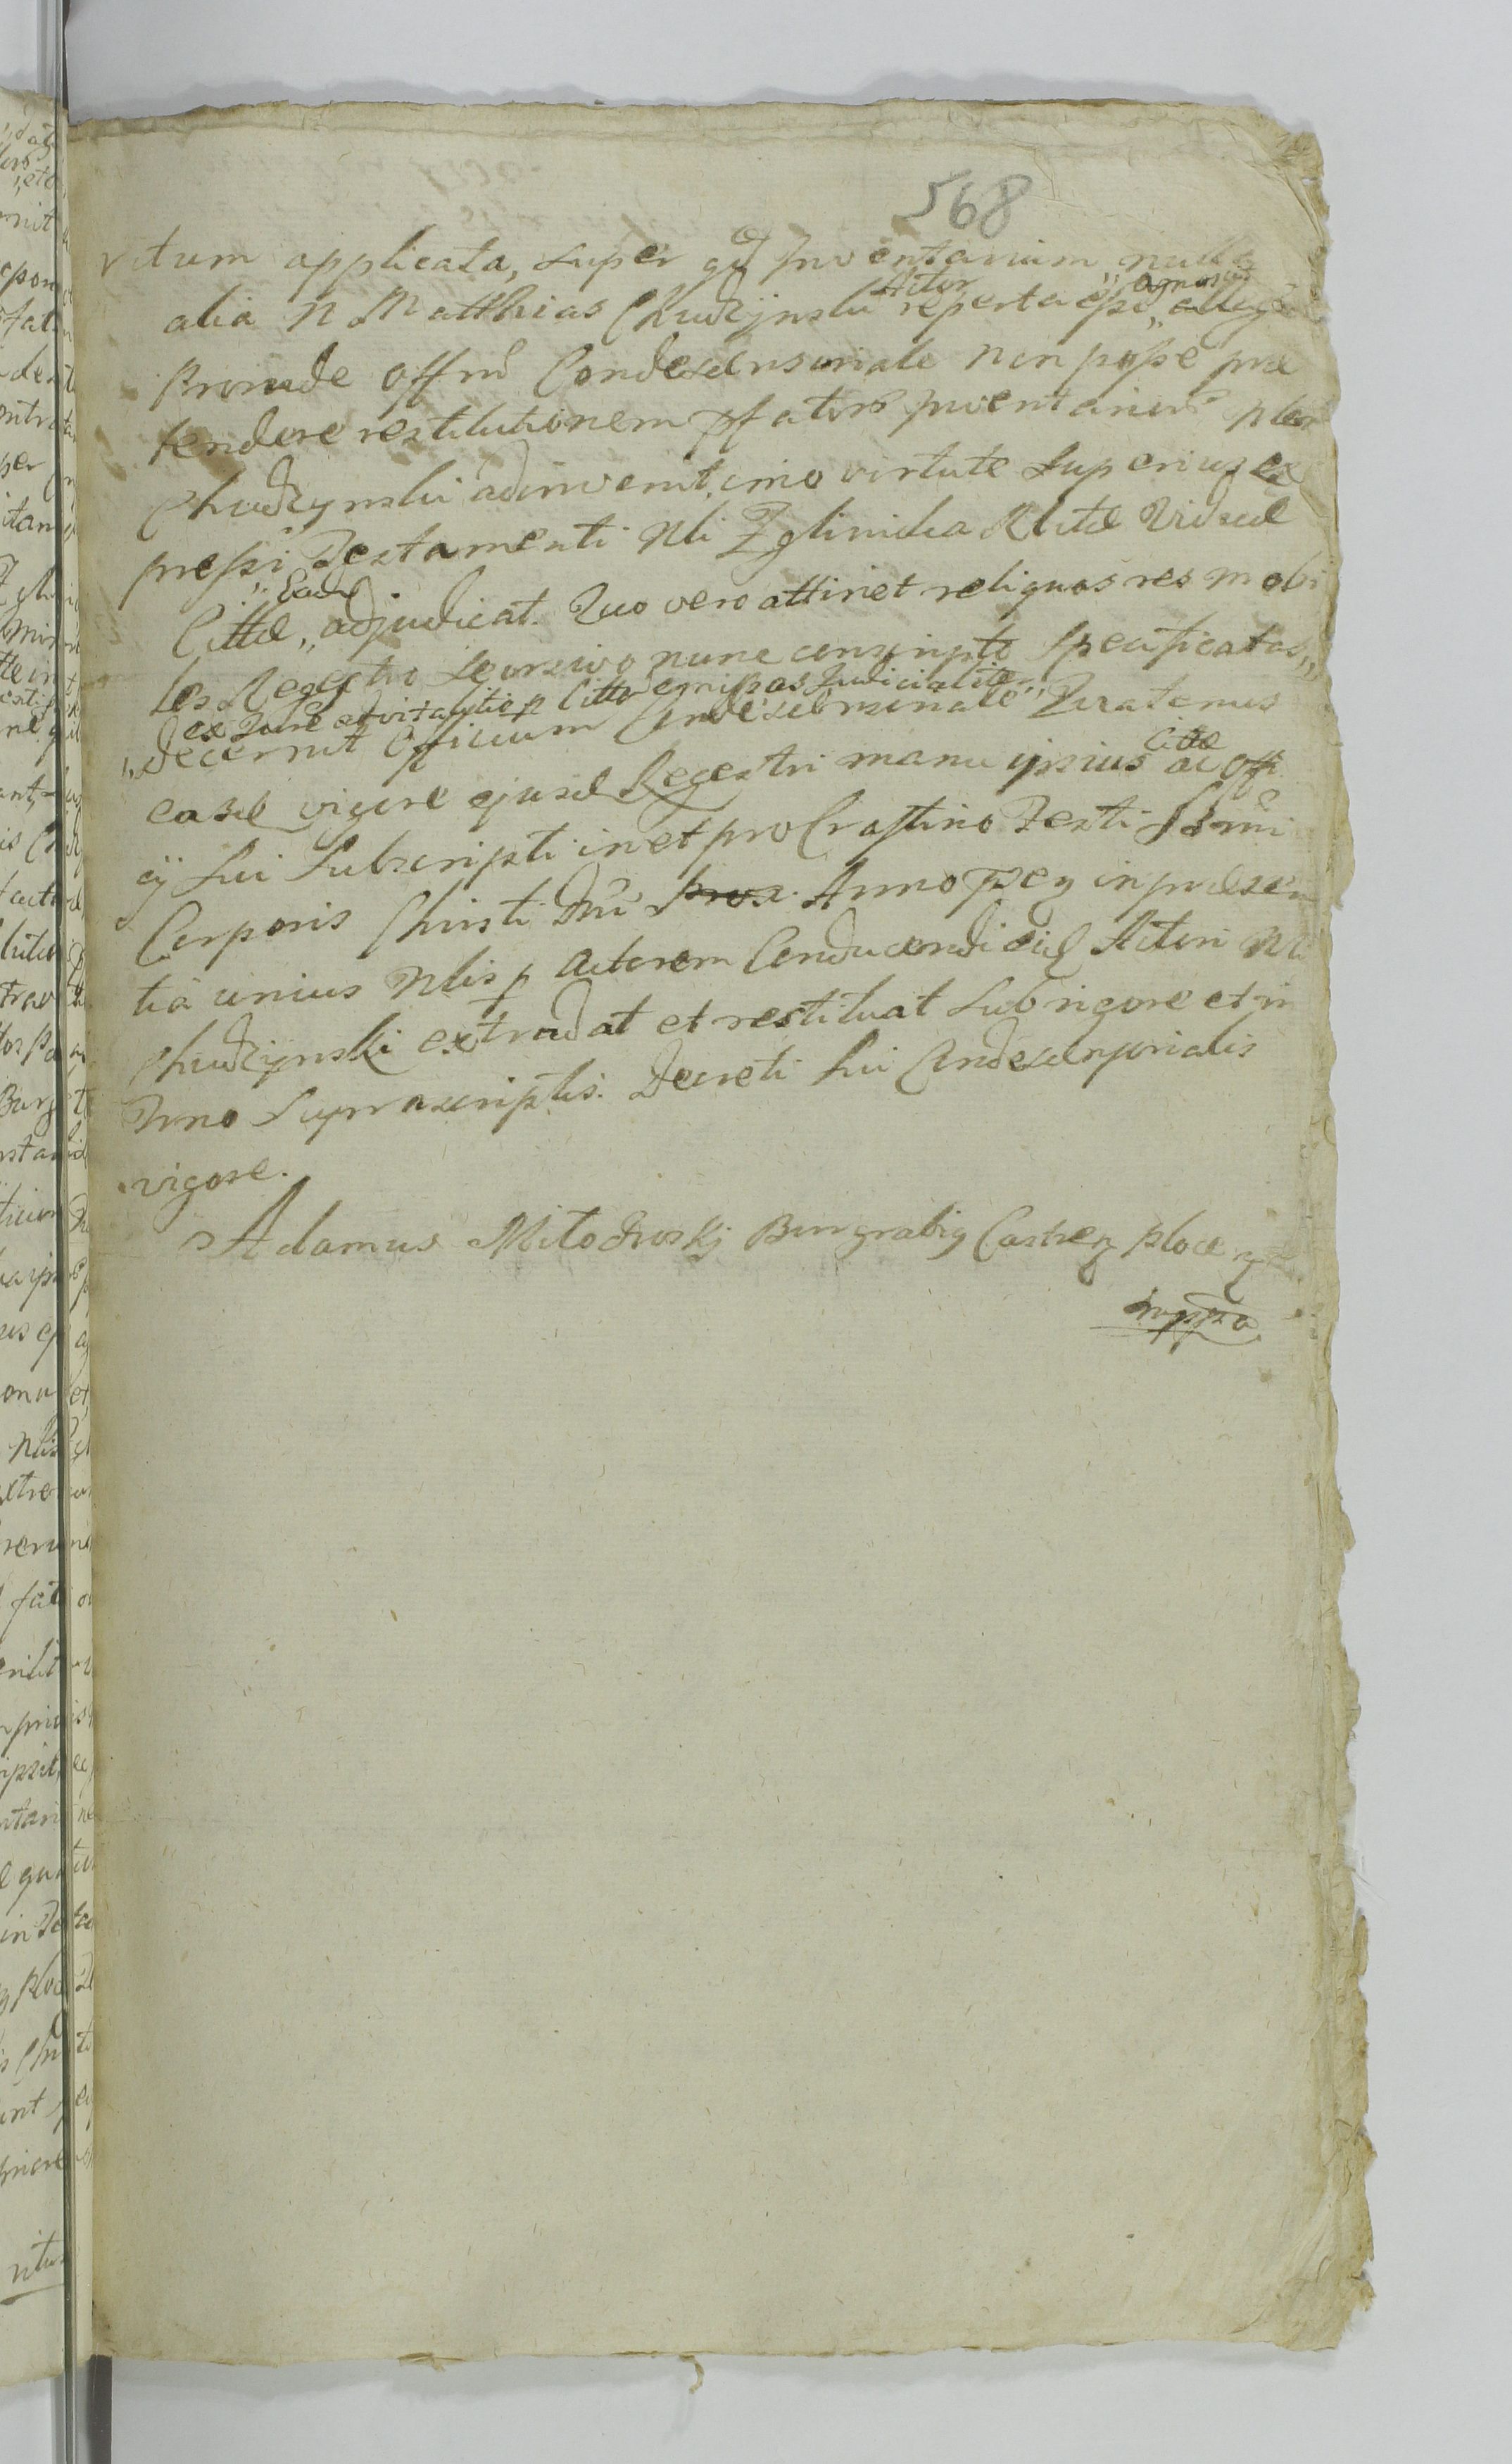 568
ritum applicata, super qd Inventarium nulla
alia N Matthias Chudzynski Actor reperta esse „ agnovit
Proinde Offm Condescensoriale non posse prae
tendere restitutionem pfatorũ Inventariorũ pler
Chudzynski adinvenit, imo virtute superius ex
pressi Testamenti Nli Zglinicka Rlitae Viduae
Cittae „ Eadẽ adjudicat. Quo vero attinet reliquas res mobi
les Regestro seorsivo nunc conscripto specificatas „
ex Jure advitalitio p Cittã emissas Judicialiter „
„ decernit Officium Condescensoriale Quatenus
easd vigore ejusd Regestri manu ipsius Cittae ac Offi
cij sui subscripti in et pro Crastino Festi SSmi
Corporis Christi Dni Anno Pseñ in praesen
tia unius Nlis p Actorem Conducendi eid Actori Nli
Chudzynski extradat et restituat sub rigore et in
Fvno suprascriptis. Decreti sui Condescensorialis
vigore.
Adamus Milodroskj Burgrabig Castreñ Ploceñ
mppa